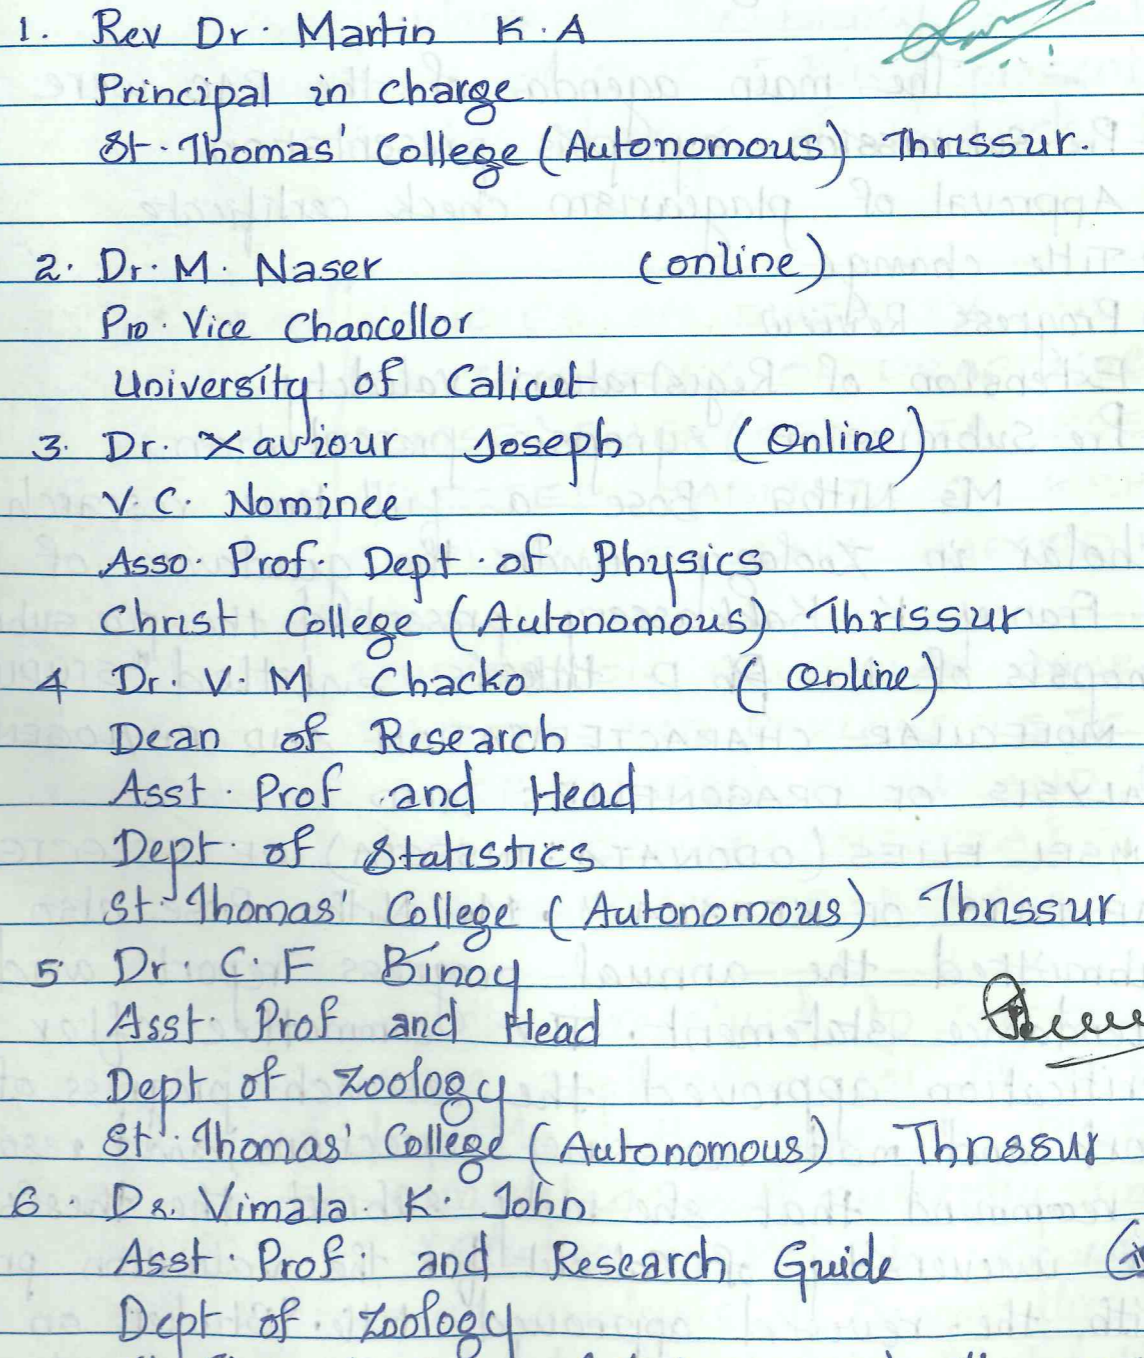 1. Rev Dr. Martin K.A
Principal in charge
St. Thomas' College (Autonomous) Thrissur.
2. Dr. M. Naser (online)
Pro. Vice Chancellor
University of Calicut
3. Dr. Xaviour Joseph (Online)
V.C. Nominee
Asso. Prof. Dept. of Physics
Christ College (Autonomous) Thrissur
4 Dr. V. M Chacko (Online)
Dean of Research
Asst. Prof and Head
Dept. of Statistics
St. Thomas' College (Autonomous) Thrissur
5. Dr. C. F Binoy
Asst. Prof and Head
Dept of Zoology
St. Thomas' College (Autonomous) Thrissur
6. Dr. Vimala. K. John
Asst. Prof. and Research Guide
Dept of Zoology